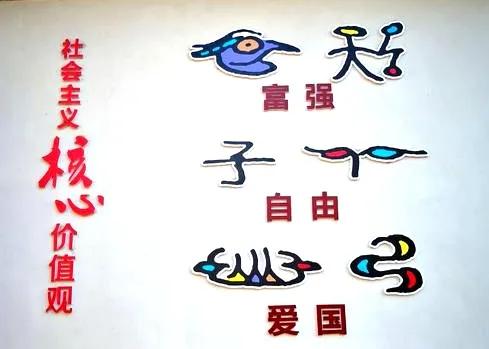 社会主义核心价值观
富强
自由
爱国